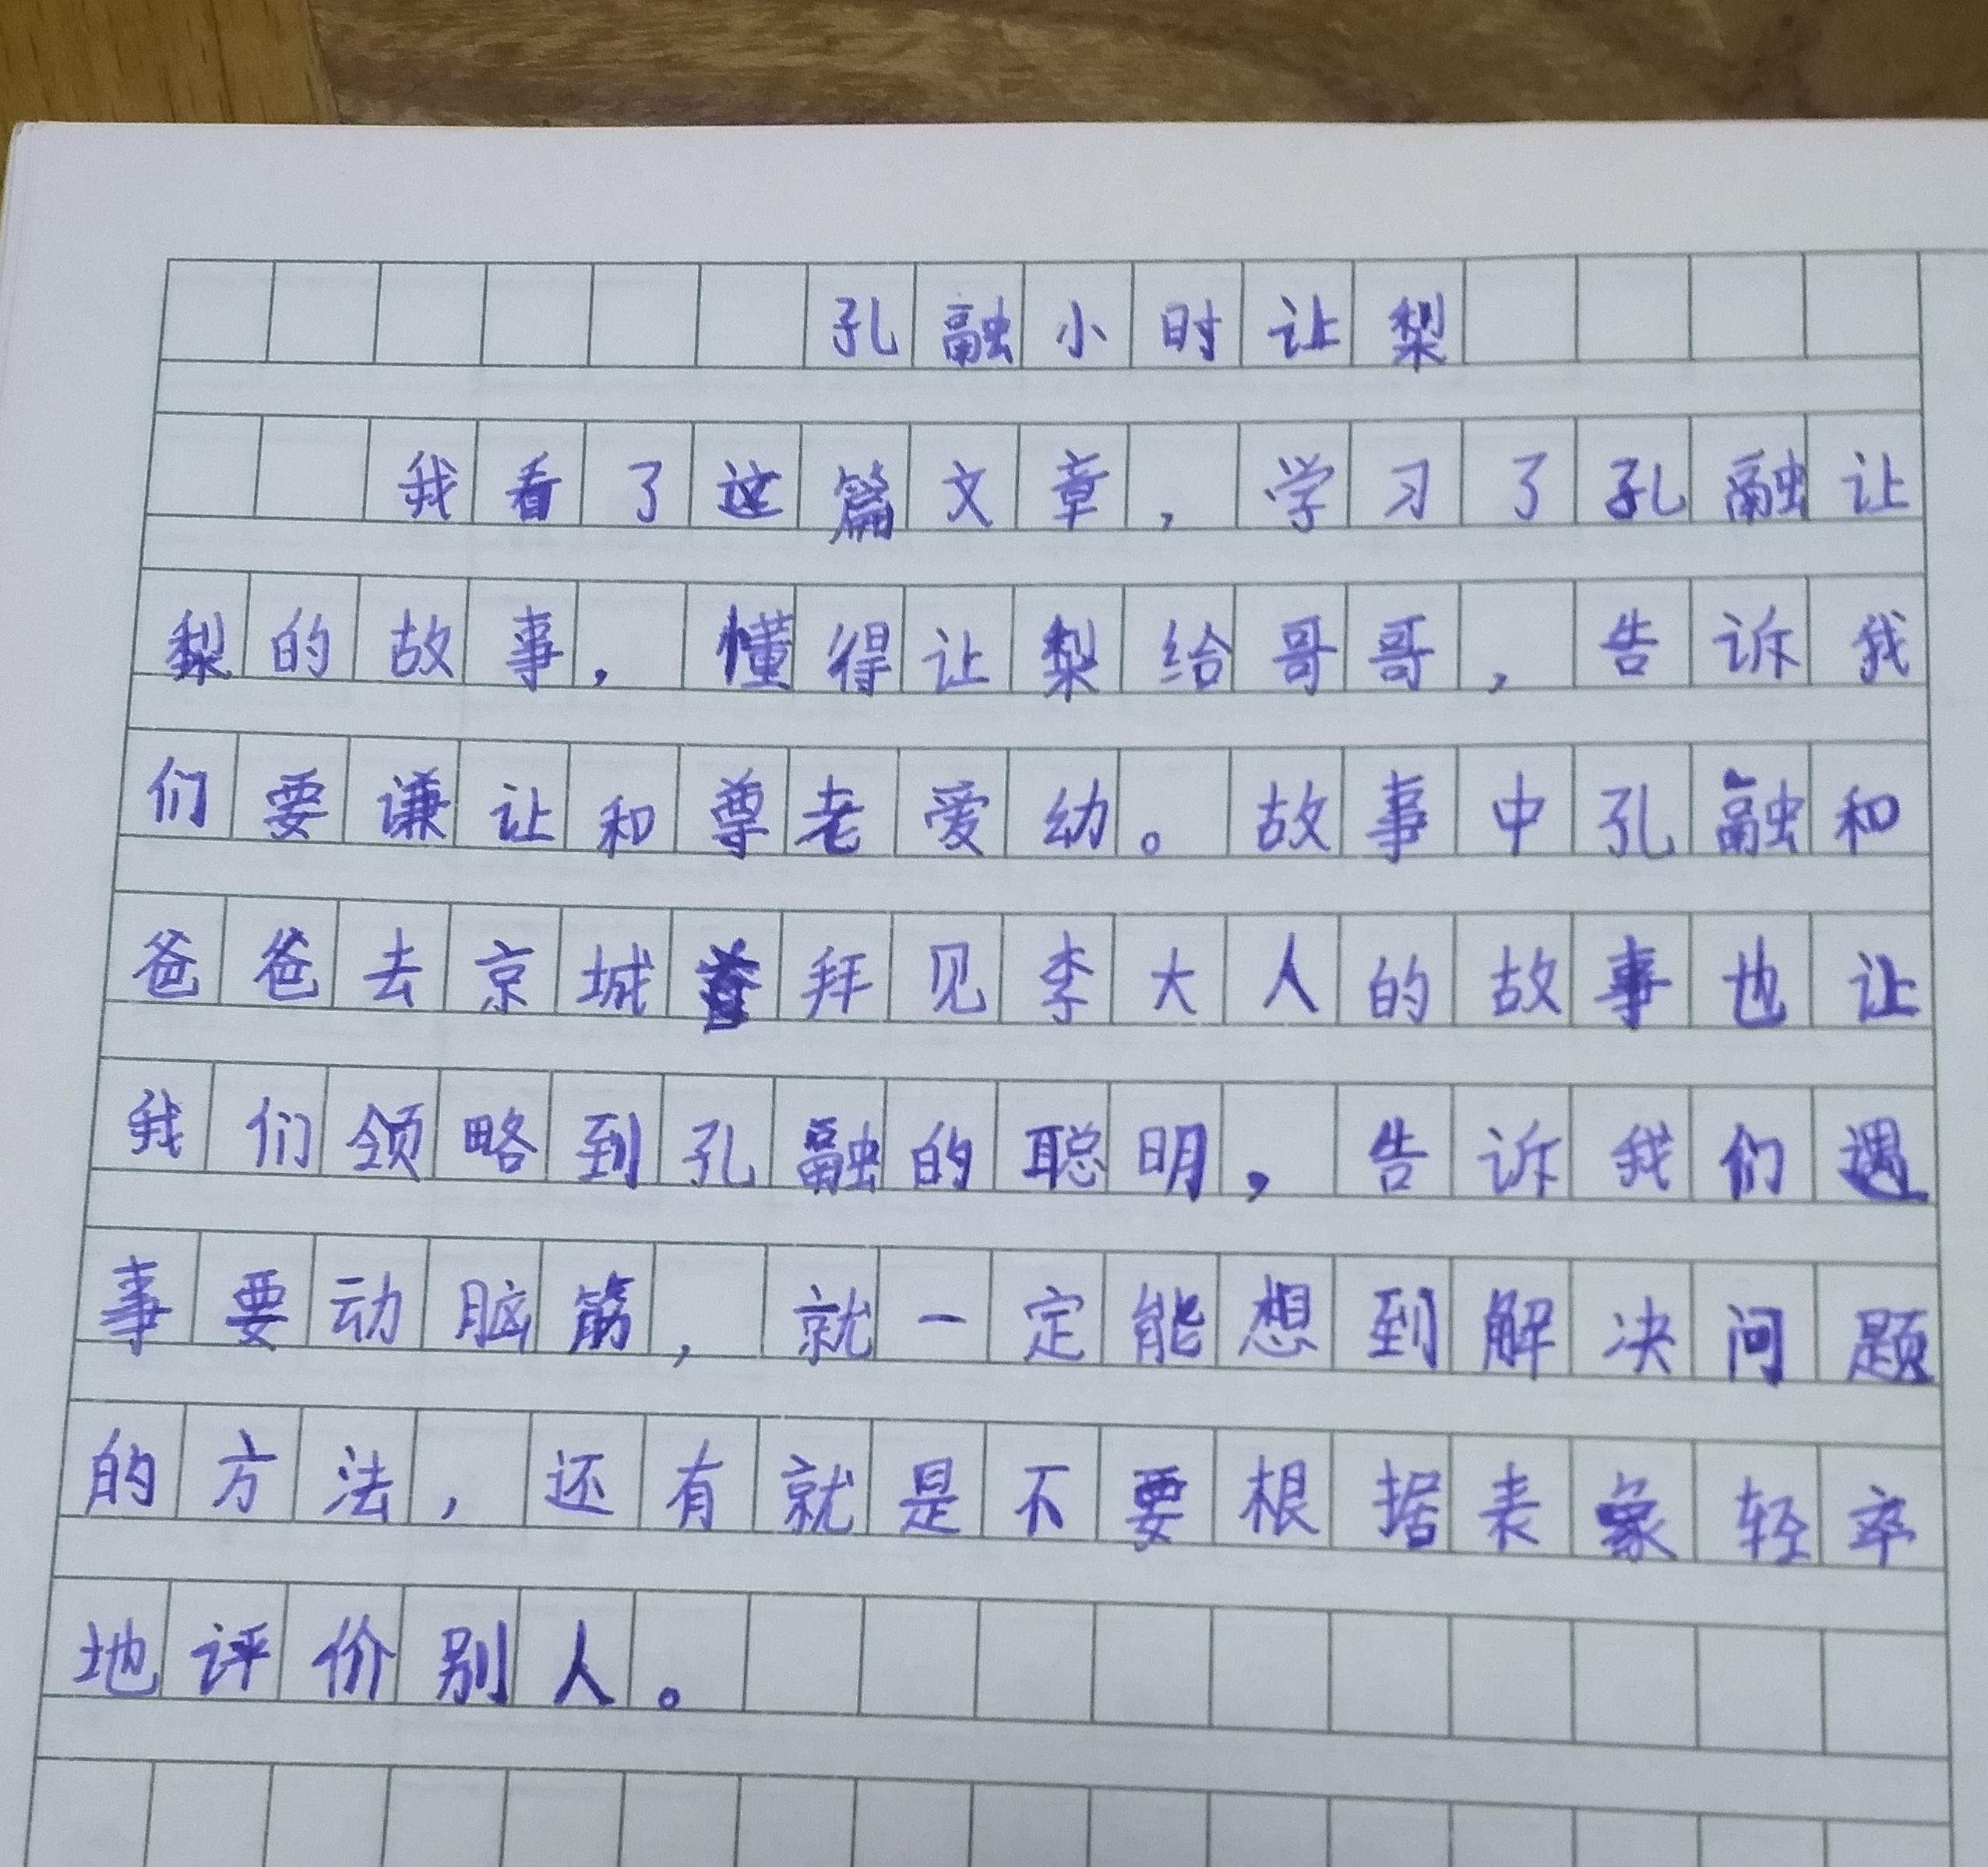 孔融小时让梨
我看了这篇文章，学习了孔融让
梨的故事，懂得让梨给哥哥，告诉我
们要谦让和尊老爱幼。故事中孔融和
爸爸去京城拜见李大人的故事也让
我们领略到孔融的聪明，告诉我们遇
事要动脑筋，就一定能想到解决问题
的方法，还有就是不要根据表象轻卒
地评价别人。